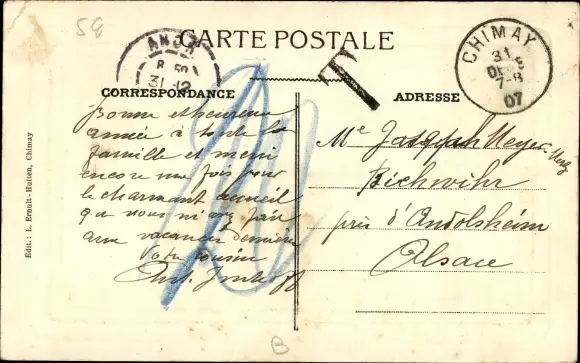 59
CARTE POSTALE
ANOR
8 50
31-12
T
CHIMAY
31
DEC
7-8
07
CORRESPONDANCE
ADRESSE
Bonne et heureuse
année à toute la
famille et merci
encore une fois pour
le charmant accueil
que nous m'avez fait
aux vacances dernières
Votre cousine
Me Meyer-
Bischwihr
près d'Andolsheim
Alsace
Edit.: L. Ernult-Hutten, Chimay
B